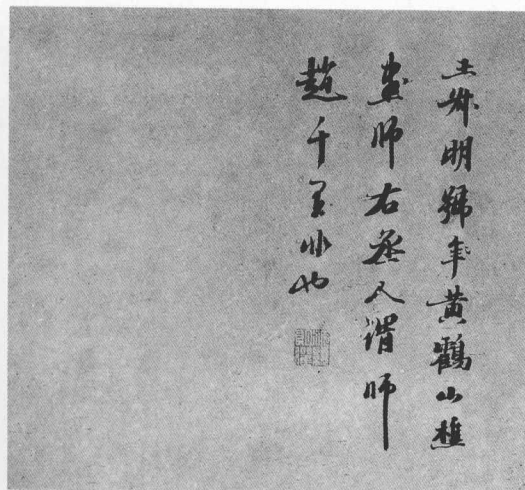 王叔明號黃鶴山樵
畫師右丞人謂師
趙千里非也